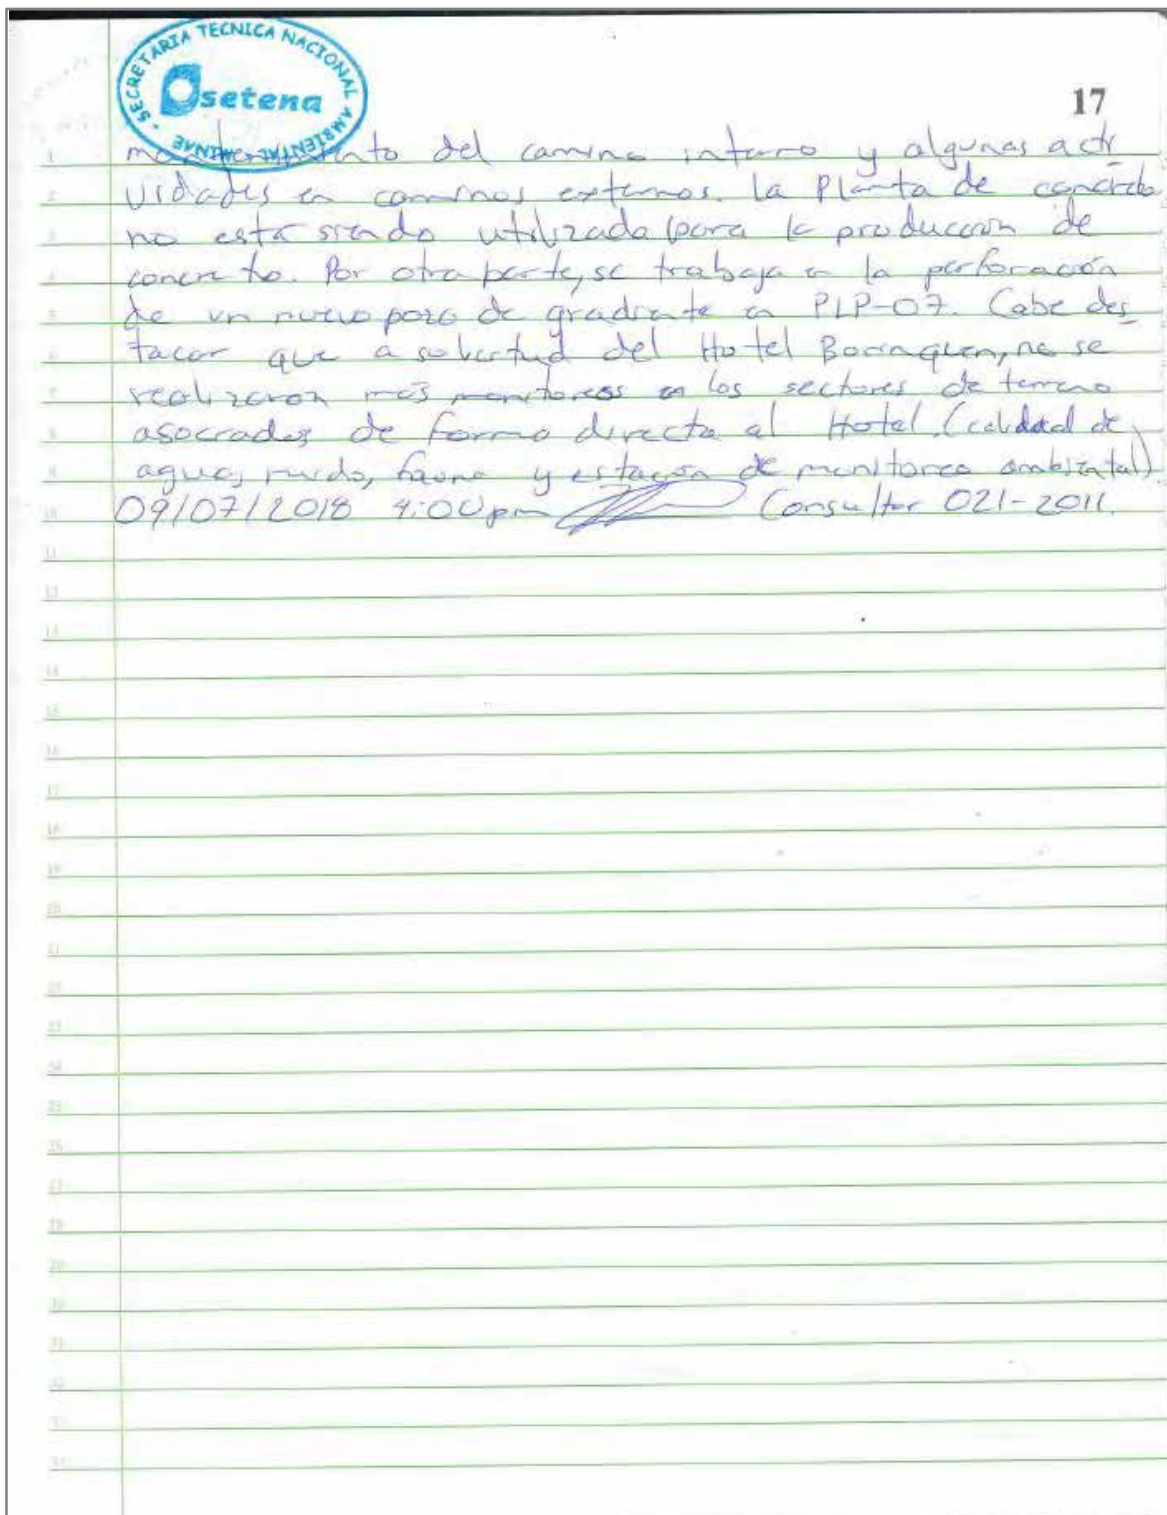 SECRETARIA TECNICA NACIONAL AMBIENTAL - MINAE -
setena
17
1 mantenimiento del camino interno y algunas acti
2 vidades en caminos externos. La Planta de concreto
3 no está siendo utilizada para la producción de
4 concreto. Por otra parte, se trabaja en la perforación
5 de un nuevo pozo de gradiente en PLP-07. Cabe des
6 tacar que a solicitud del Hotel Borinquen, no se
7 realizaron más monitoreos en los sectores de terreno
8 asociados de forma directa al Hotel. (calidad de
9 agua, ruido, fauna y estación de monitoreo ambiental)
10 09/07/2018 4:00 pm Consultor 021-2011.
11
12
13
14
15
16
17
18
19
20
21
22
23
24
25
26
27
28
29
30
31
32
33
34